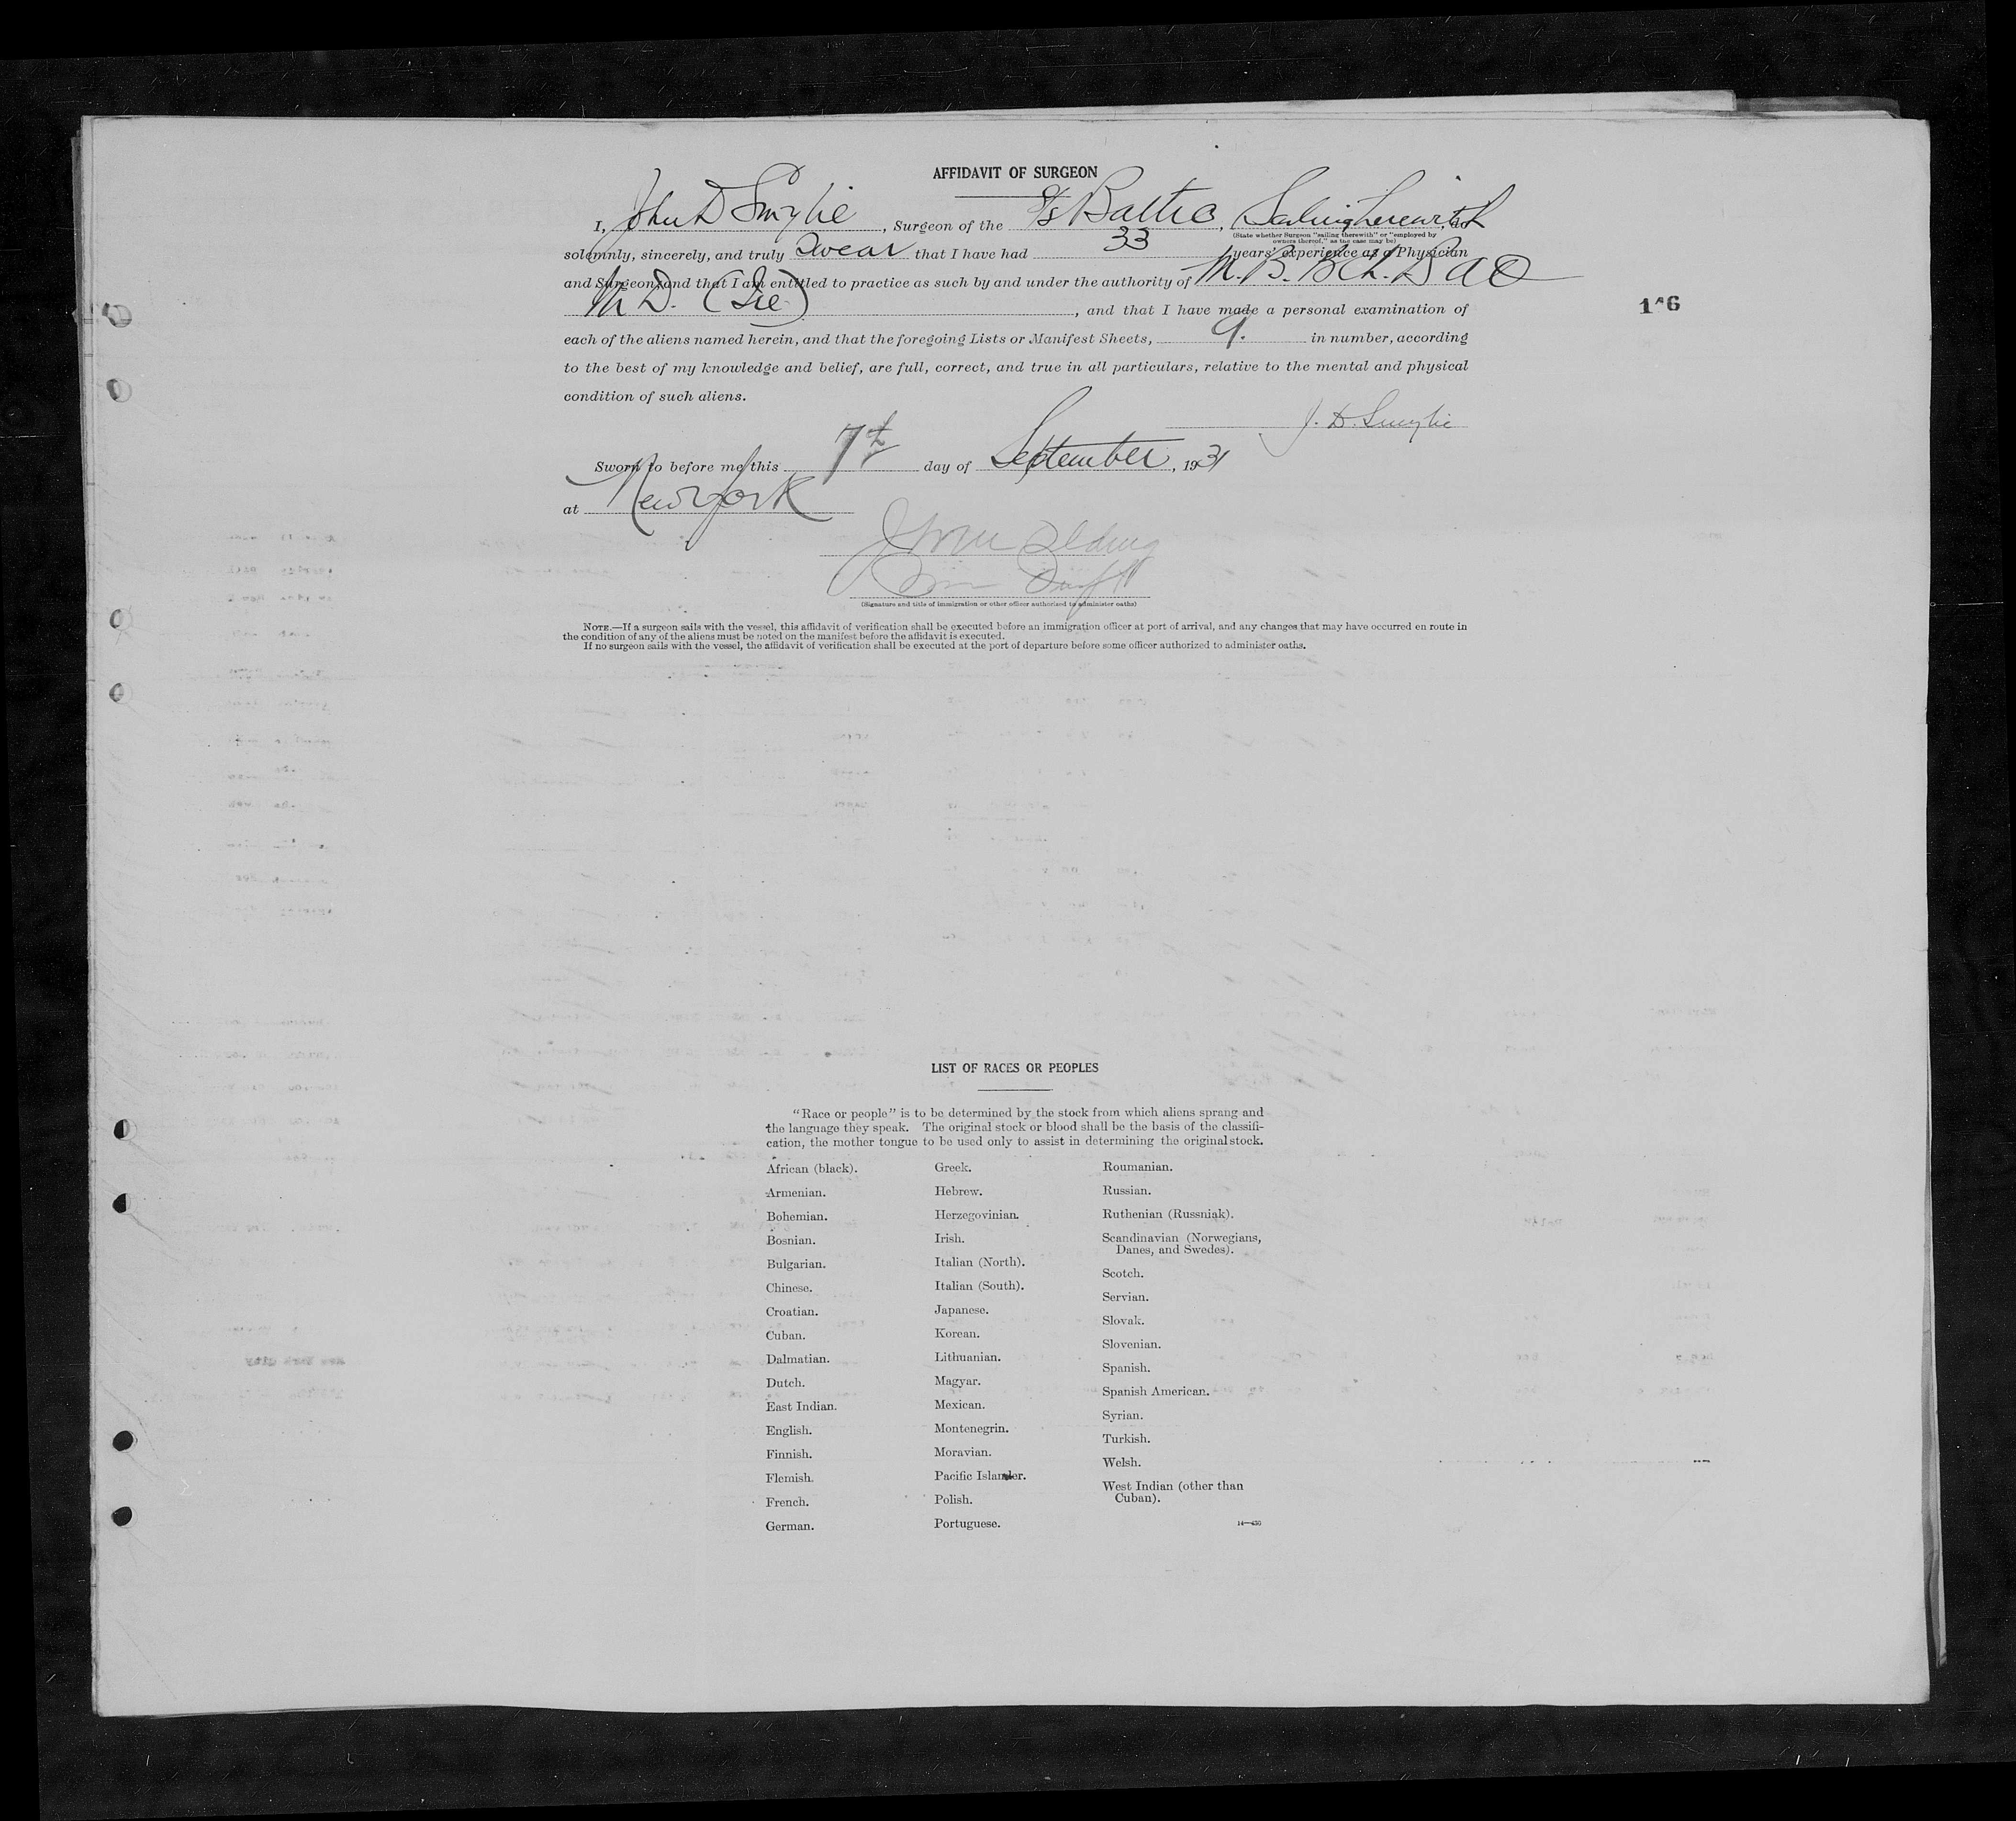 AFFIDAVIT OF SURGEON
I, John D Smylie, Surgeon of the S/S Baltic, Sailing therewith, do
(State whether Surgeon "sailing therewith" or "employed by
owners thereof," as the case may be)
solemnly, sincerely, and truly swear that I have had 33 years' experience as a Physician
and Surgeon and that I am entitled to practice as such by and under the authority of M. B. B Ch. B A O
M D. (Ire), and that I have made a personal examination of
each of the aliens named herein, and that the foregoing Lists or Manifest Sheets, 9. in number, according
to the best of my knowledge and belief, are full, correct, and true in all particulars, relative to the mental and physical
condition of such aliens.
J. D. Smylie
Sworn to before me this 7th day of September, 1931
at New York
(Signature and title of immigration or other officer authorized to administer oaths)
NOTE.—If a surgeon sails with the vessel, this affidavit of verification shall be executed before an immigration officer at port of arrival, and any changes that may have occurred en route in
the condition of any of the aliens must be noted on the manifest before the affidavit is executed.
If no surgeon sails with the vessel, the affidavit of verification shall be executed at the port of departure before some officer authorized to administer oaths.
LIST OF RACES OR PEOPLES
"Race or people" is to be determined by the stock from which aliens sprang and
the language they speak. The original stock or blood shall be the basis of the classifi-
cation, the mother tongue to be used only to assist in determining the original stock.
African (black).
Armenian.
Bohemian.
Bosnian.
Bulgarian.
Chinese.
Croatian.
Cuban.
Dalmatian.
Dutch.
East Indian.
English.
Finnish.
Flemish.
French.
German.
Greek.
Hebrew.
Herzegovinian.
Irish.
Italian (North).
Italian (South).
Japanese.
Korean.
Lithuanian.
Magyar.
Mexican.
Montenegrin.
Moravian.
Pacific Islander.
Polish.
Portuguese.
Roumanian.
Russian.
Ruthenian (Russniak).
Scandinavian (Norwegians,
Danes, and Swedes).
Scotch.
Servian.
Slovak.
Slovenian.
Spanish.
Spanish American.
Syrian.
Turkish.
Welsh.
West Indian (other than
Cuban).